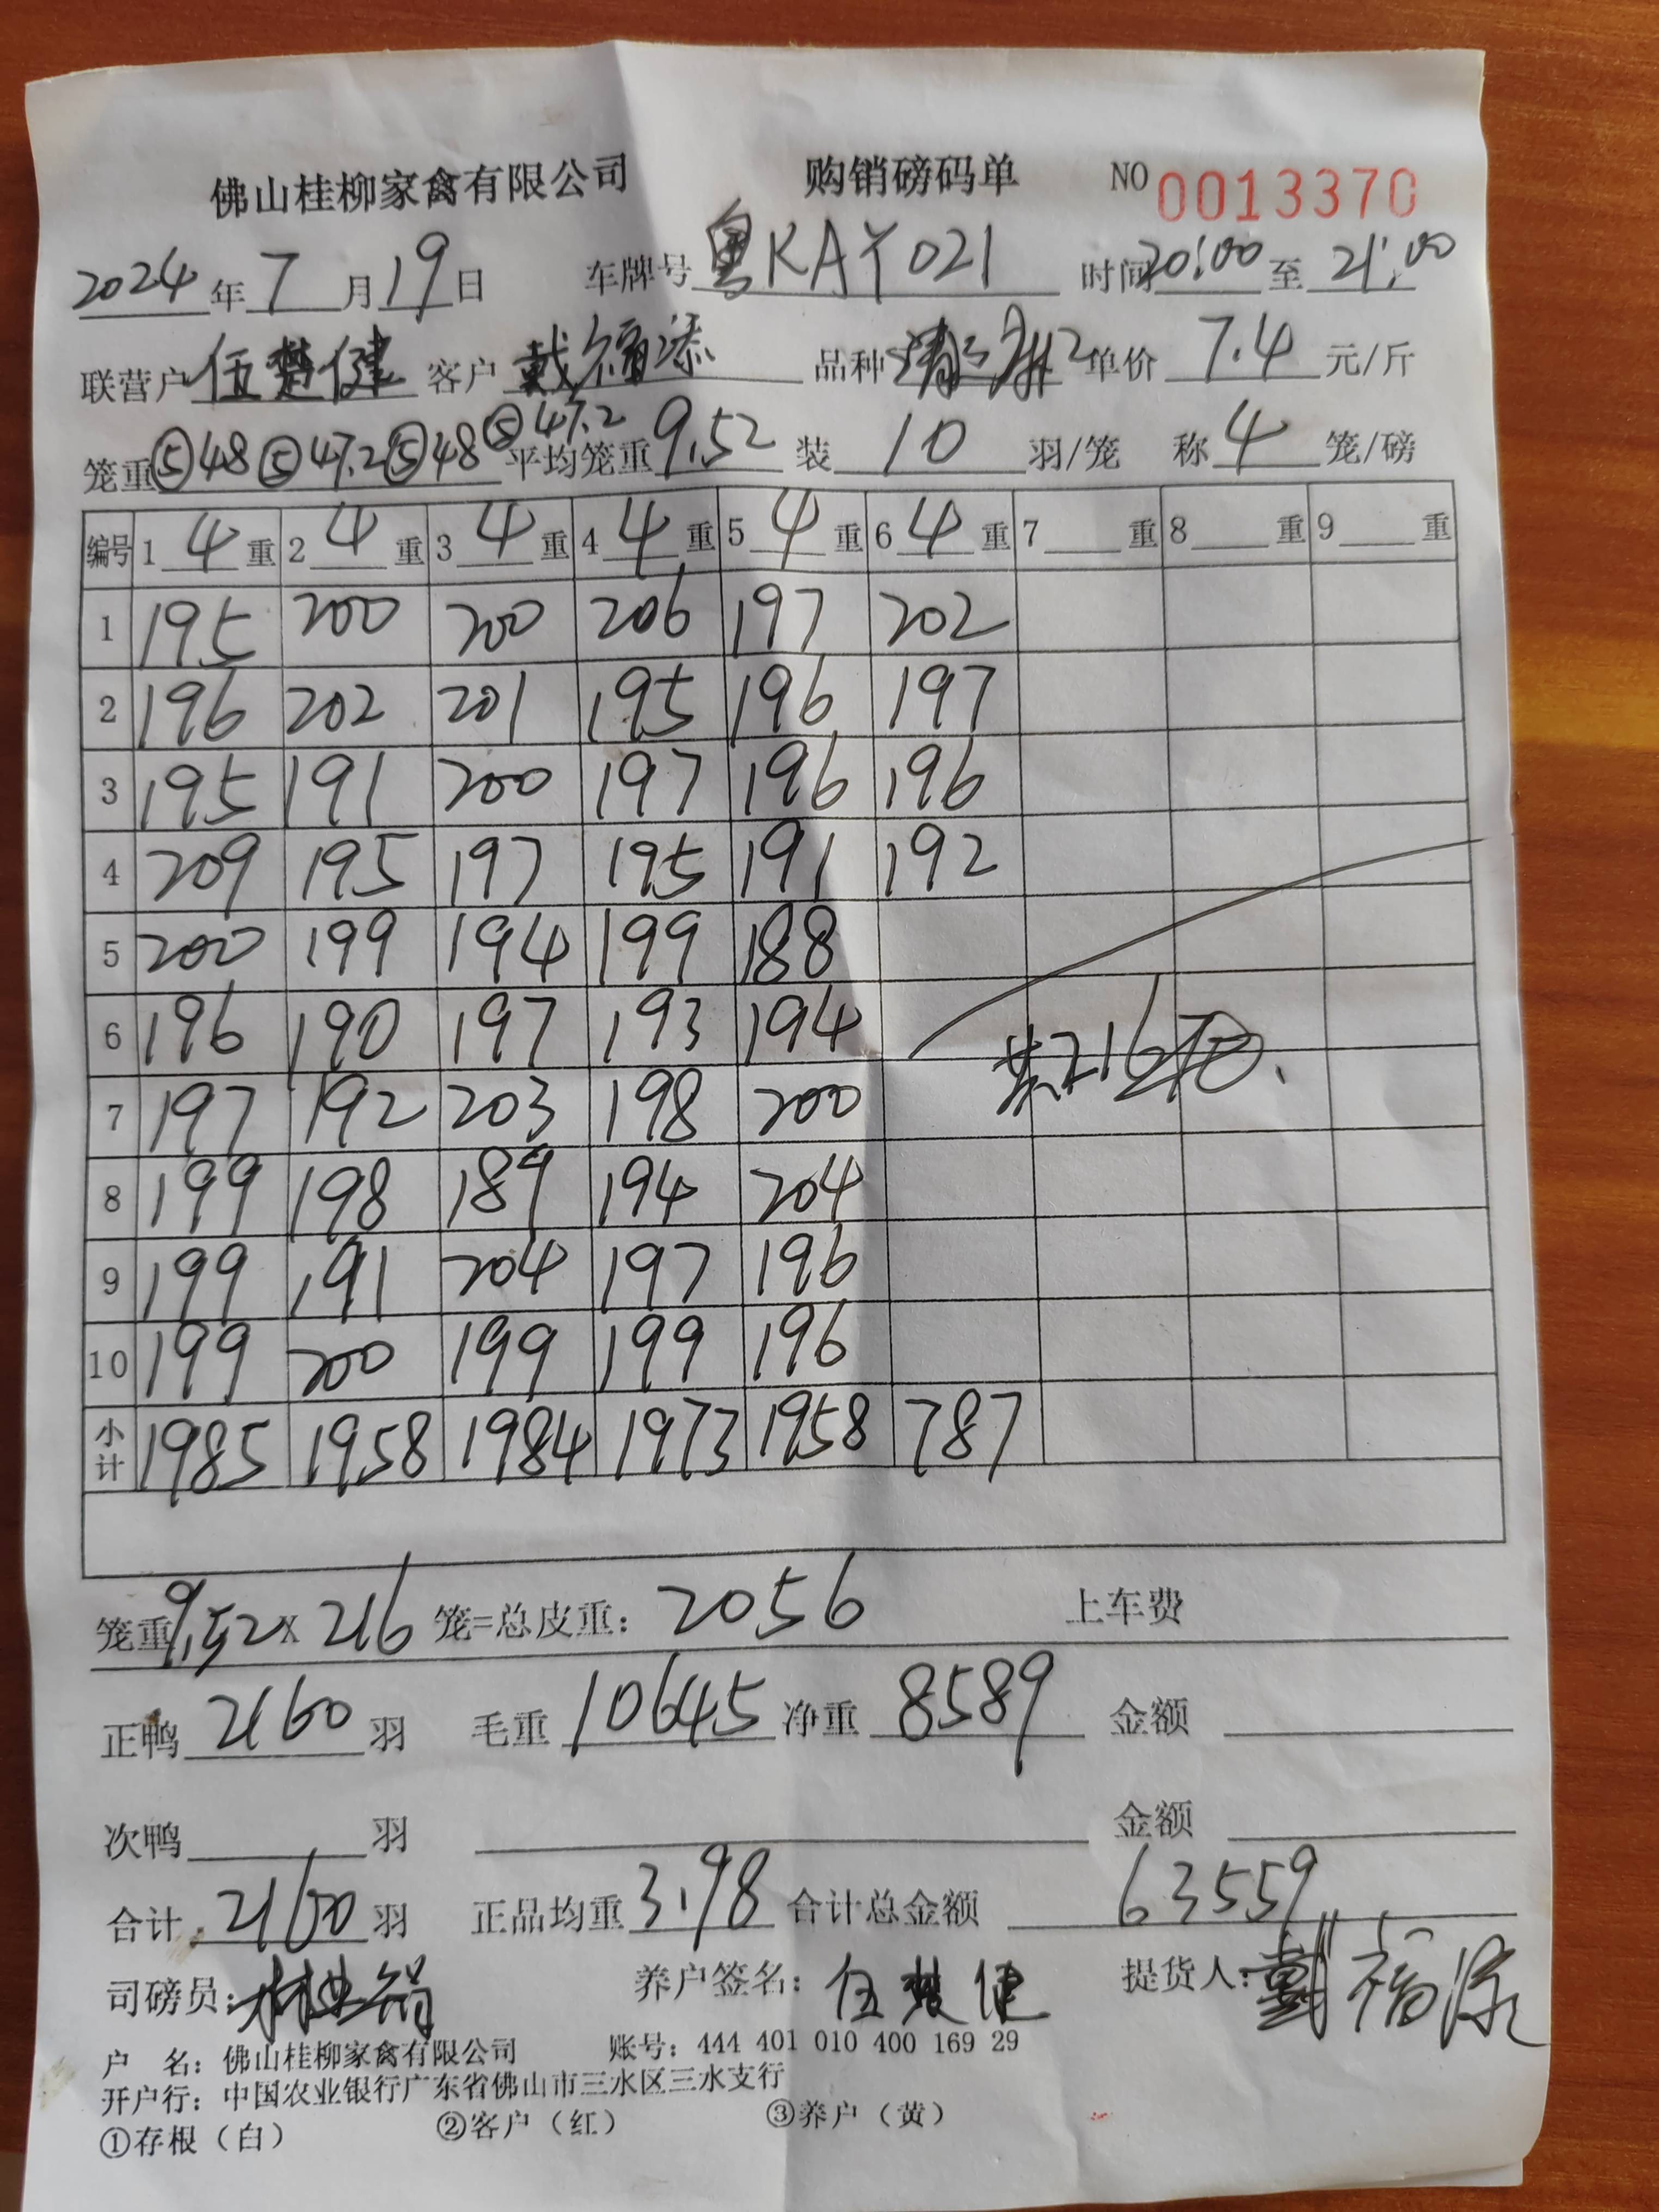 佛山桂柳家禽有限公司 购销磅码单 NO 0013370
2024年7月19日 车牌号 粤KAY021 时间20:00至21:00
联营户 伍楚健 客户 戴福添 品种 单价 7.4 元/斤
笼重⑤48⑤47.2⑤48⑤47.2 平均笼重9.52 装 10 羽/笼 称 4 笼/磅
编号 1 4 重 2 4 重 3 4 重 4 4 重 5 4 重 6 4 重 7 重 8 重 9 重
1 195 200 200 206 197 202
2 196 202 201 195 196 197
3 195 191 200 197 196 196
4 209 195 197 195 191 192
5 200 199 194 199 188
6 196 190 197 193 194 共216笼
7 197 192 203 198 200
8 199 198 189 194 204
9 199 191 204 197 196
10 199 200 199 199 196
小计 1985 1958 1984 1973 1958 787
笼重9.52X 216 笼=总皮重: 2056 上车费
正鸭 2160 羽 毛重 10645 净重 8589 金额
次鸭 羽 金额
合计 2160 羽 正品均重 3.98 合计总金额 63559
司磅员: 养户签名: 伍楚健 提货人: 戴福添
户 名: 佛山桂柳家禽有限公司 账号: 444 401 010 400 169 29
开户行: 中国农业银行广东省佛山市三水区三水支行
①存根（白） ②客户（红） ③养户（黄）